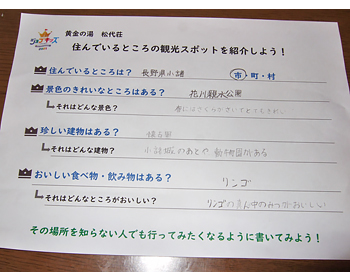 黄金の湯　松代荘
住んでいるところの観光スポットを紹介しよう！
住んでいるところは？ 長野県小諸 市・町・村
景色のきれいなところはある？
それはどんな景色？
珍しい建物はある？
それはどんな建物？ 動物園がある
おいしい食べ物・飲み物はある？ リンゴ
それはどんなところがおいしい？ リンゴの真ん中のみつがおいしい
その場所を知らない人でも行ってみたくなるように書いてみよう！